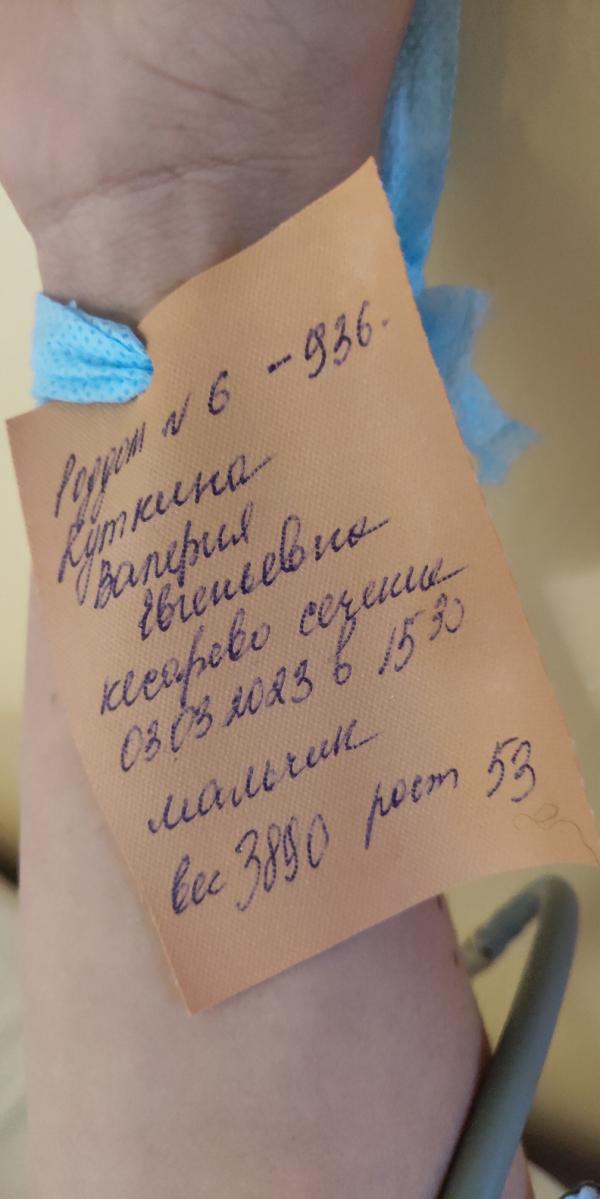 Роддом N 6 - 936.
Куткина
Валерия
Евгеньевна
кесарево сечение
03 03 2023 в 15 30
мальчик
вес 3890 рост 53